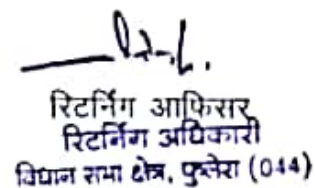 रिटर्निंग आफिसर
रिटर्निंग अधिकारी
विधान सभा क्षेत्र, फुलेरा (044)